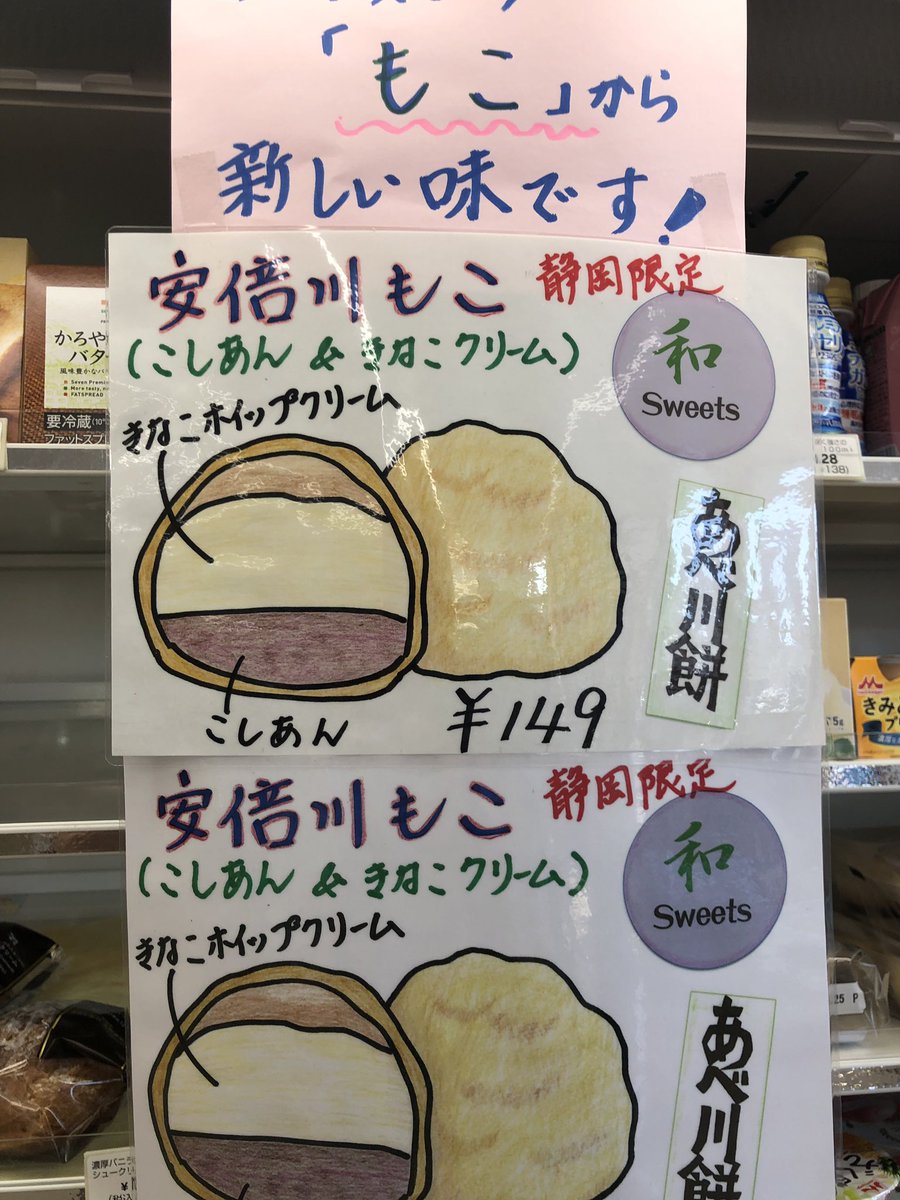 「もこ」から
新しい味です!
安倍川もこ
静岡限定
(こしあん & きなこクリーム)
和
Sweets
きなこホイップクリーム
あべ川餅
こしあん
¥149
安倍川もこ
静岡限定
(こしあん & きなこクリーム)
和
Sweets
きなこホイップクリーム
あべ川餅
かろや
バタ
風味豊かなバ
Seven Premi
More tasty,
FATSPREAD
要冷蔵
ファットスプ
.28
138)
きみ
プリ
.25 P
濃厚バニラ
シュークリ